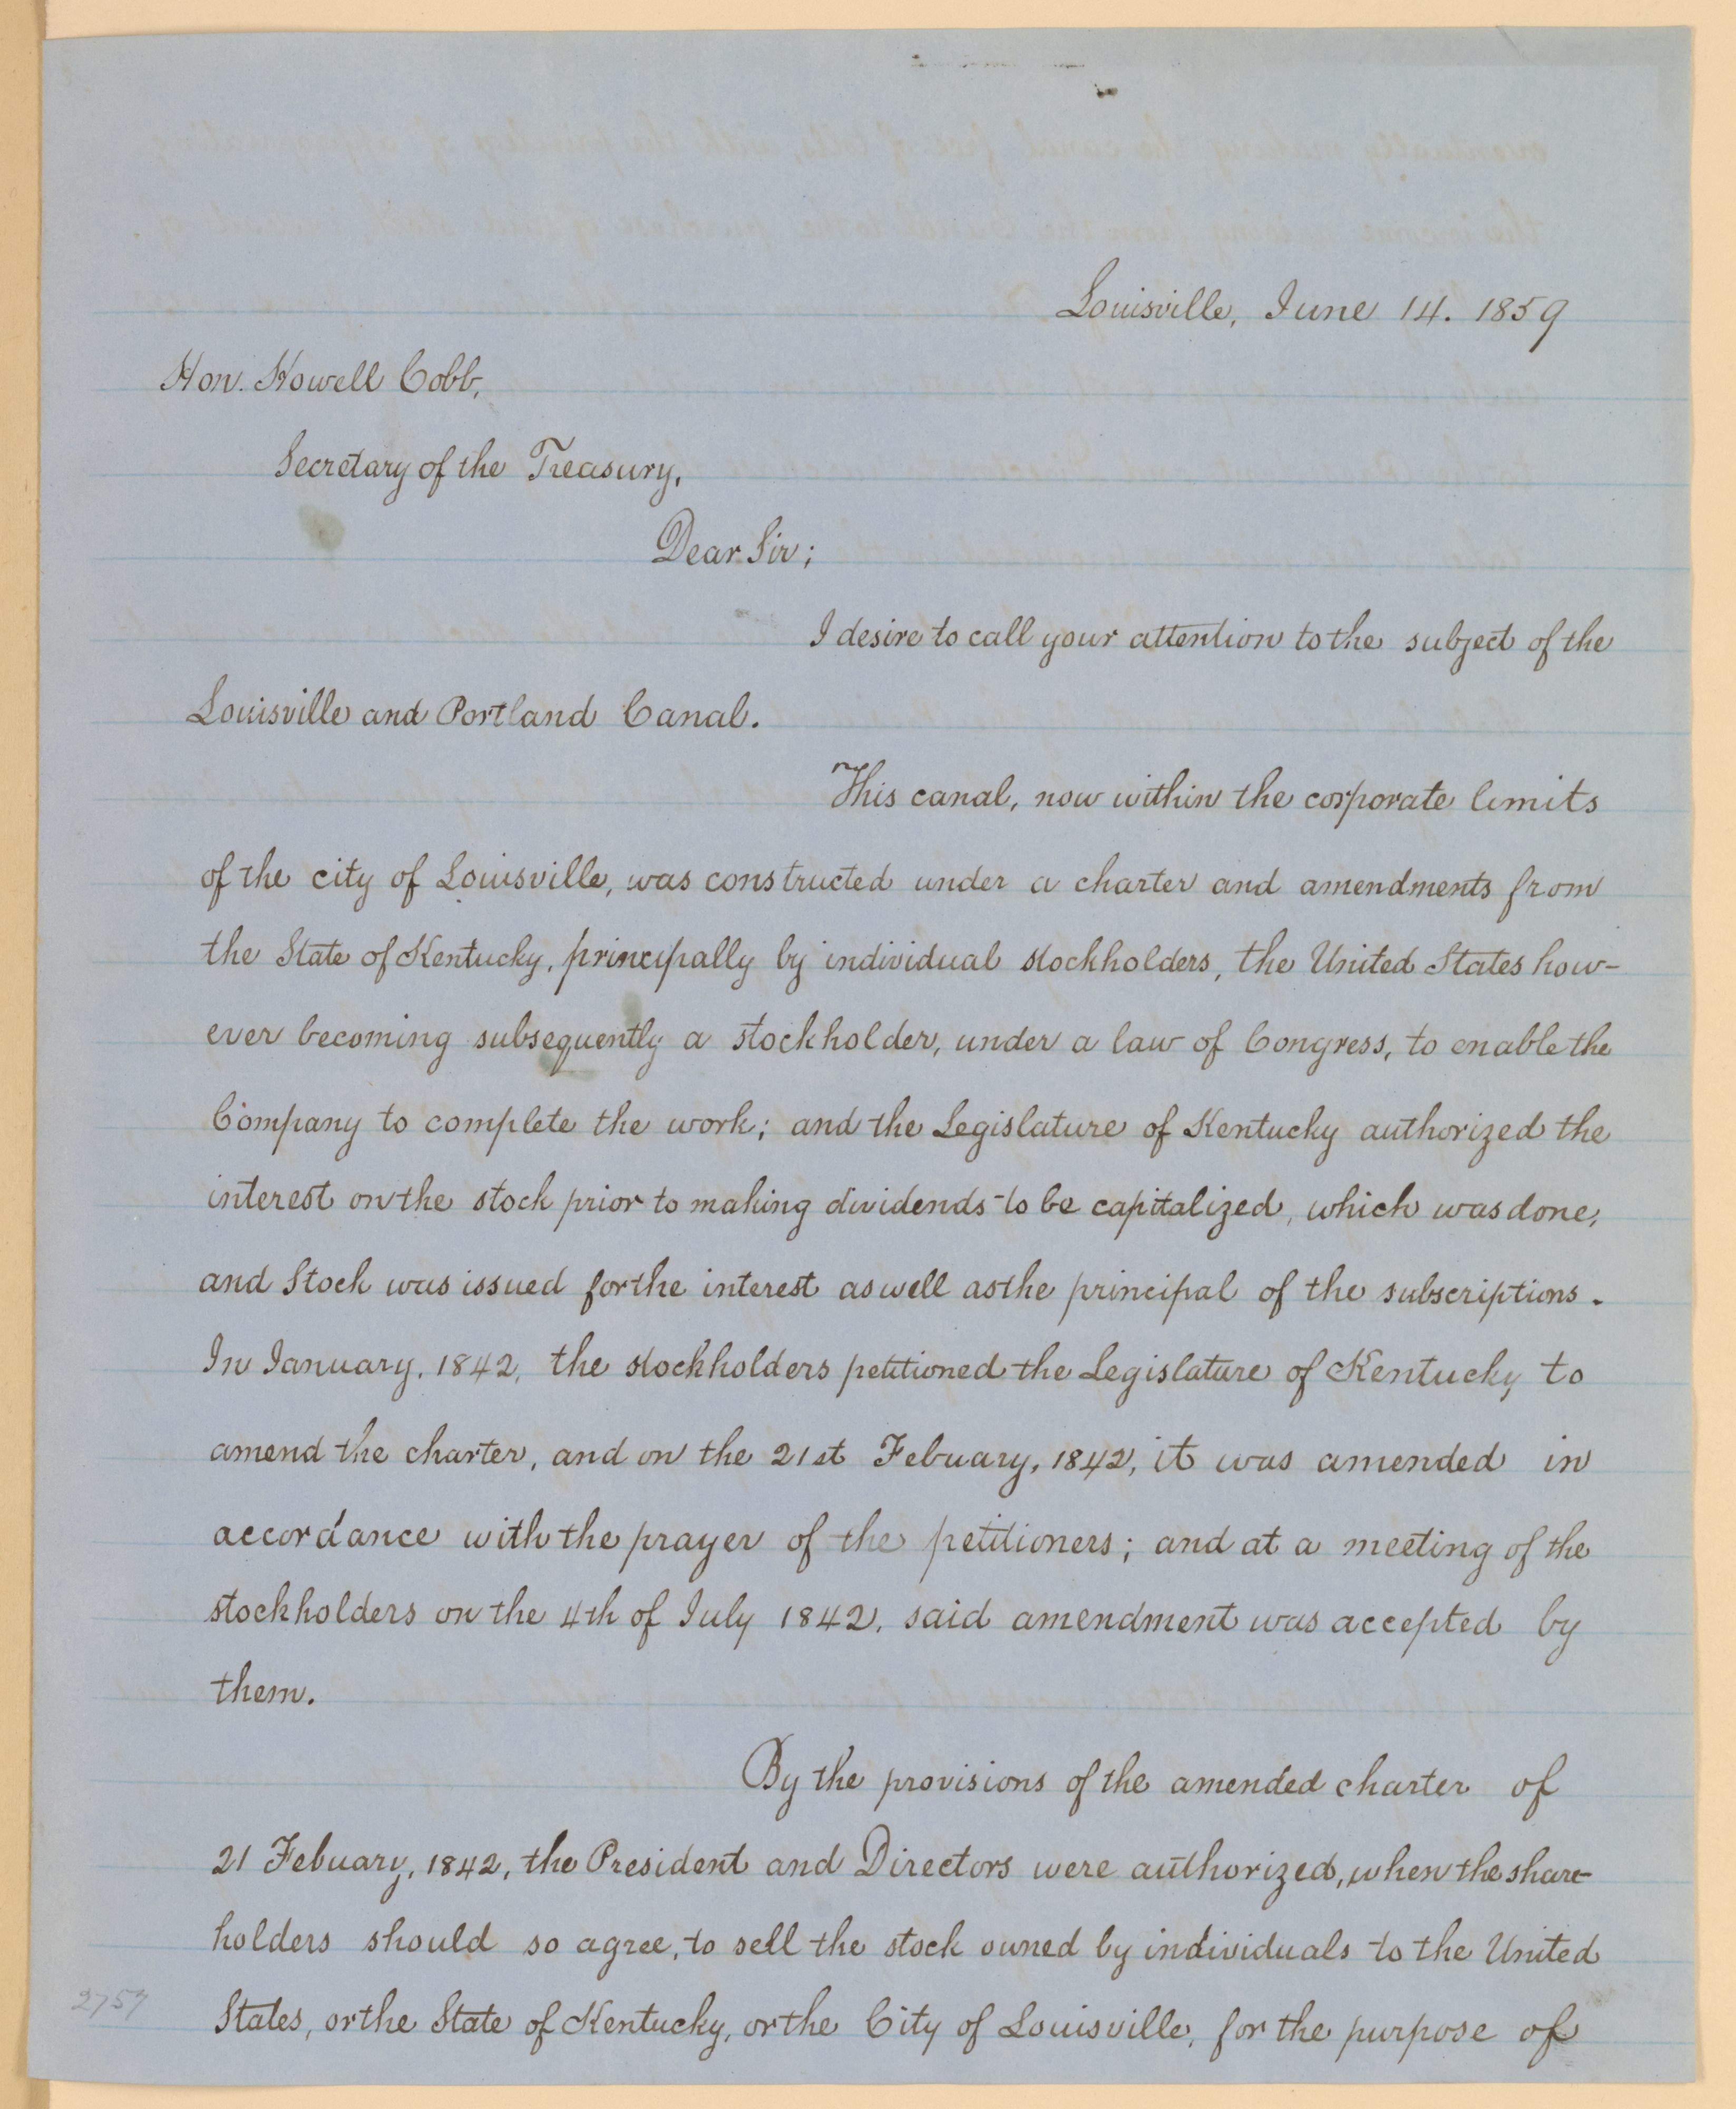 Louisville, June 14. 1859
Hon. Howell Cobb,
Secretary of the Treasury,
Dear Sir;
I desire to call your attention to the subject of the
Louisville and Portland Canal.
This canal, now within the corporate limits
of the city of Louisville, was constructed under a charter and amendments from
the State of Kentucky, principally by individual stockholders, the United States how-
ever becoming subsequently a stockholder, under a law of Congress, to enable the
Company to complete the work; and the Legislature of Kentucky authorized the
interest on the stock prior to making dividends to be capitalized, which was done,
and Stock was issued for the interest as well as the principal of the subscriptions.
In January, 1842, the stockholders petitioned the Legislature of Kentucky to
amend the charter, and on the 21st Febuary, 1842, it was amended in
accordance with the prayer of the petitioners; and at a meeting of the
stockholders on the 4th of July 1842, said amendment was accepted by
them.
By the provisions of the amended charter of
21 Febuary, 1842, the President and Directors were authorized, when the share-
holders should so agree, to sell the stock owned by individuals to the United
States, or the State of Kentucky, or the City of Louisville, for the purpose of
2757